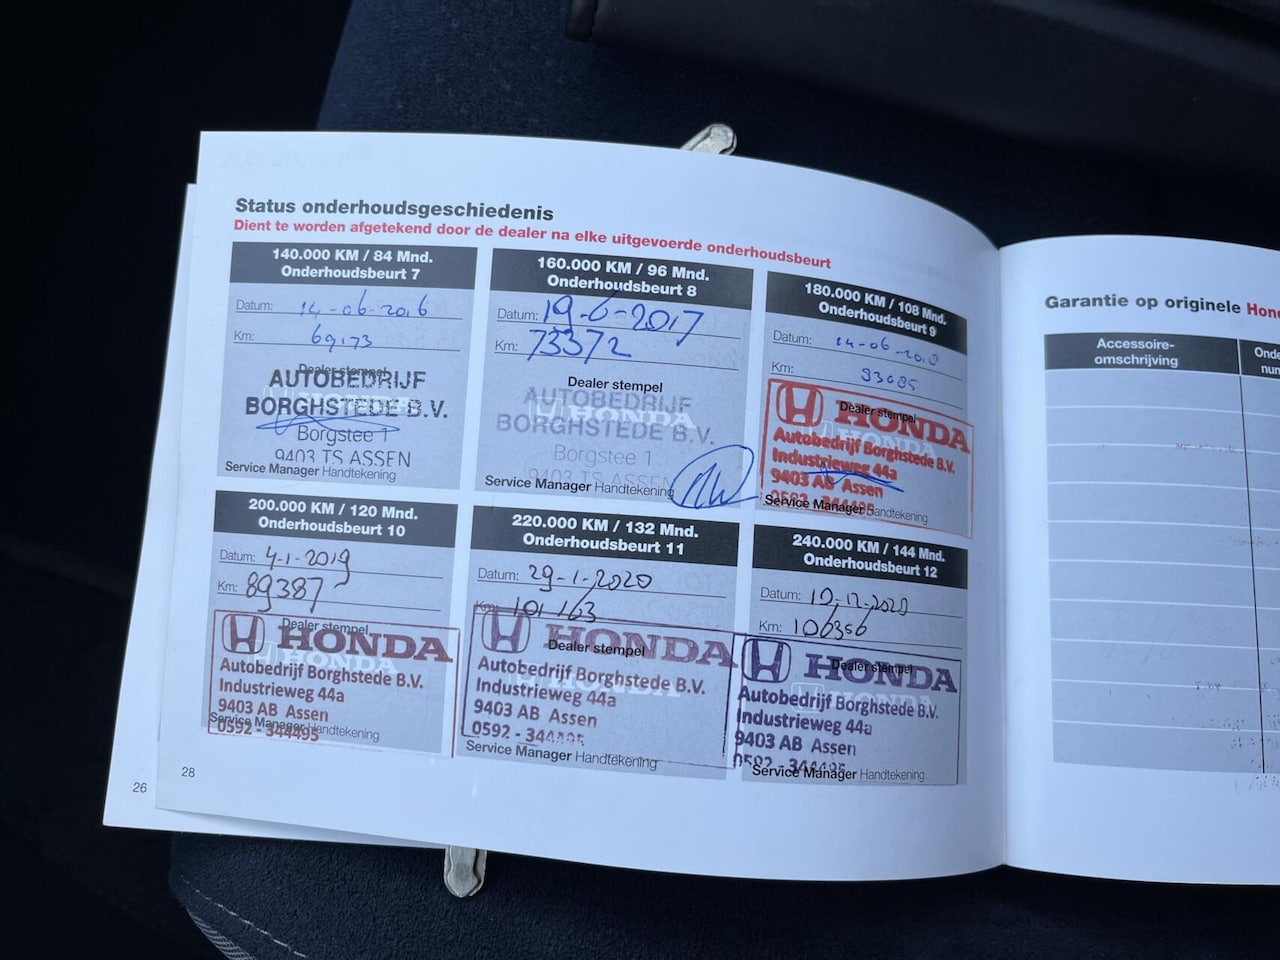 Status onderhoudsgeschiedenis
Dient te worden afgetekend door de dealer na elke uitgevoerde onderhoudsbeurt
140.000 KM / 84 Mnd.
Onderhoudsbeurt 7
Datum: 14-06-2016
Km: 69173
Dealer stempel
AUTOBEDRIJF
BORGHSTEDE B.V.
Borgstee 1
9403 TS ASSEN
Service Manager Handtekening
160.000 KM / 96 Mnd.
Onderhoudsbeurt 8
Datum: 19-6-2017
Km: 73372
Dealer stempel
AUTOBEDRIJF
HONDA
BORGHSTEDE B.V.
Borgstee 1
9403 TS ASSEN
Service Manager Handtekening
180.000 KM / 108 Mnd.
Onderhoudsbeurt 9
Datum: 14-06-2018
Km:
Dealer stempel
HONDA
Autobedrijf Borghstede B.V.
Industrieweg 44a
9403 AB Assen
0592 - 344495
Service Manager Handtekening
200.000 KM / 120 Mnd.
Onderhoudsbeurt 10
Datum: 4-1-2019
Km: 89387
Dealer stempel
HONDA
HONDA
Autobedrijf Borghstede B.V.
Industrieweg 44a
9403 AB Assen
0592 - 344495
Service Manager Handtekening
220.000 KM / 132 Mnd.
Onderhoudsbeurt 11
Datum: 29-1-2020
Km: 101163
HONDA
Dealer stempel
Autobedrijf Borghstede B.V.
Industrieweg 44a
9403 AB Assen
0592 - 344495
Service Manager Handtekening
240.000 KM / 144 Mnd.
Onderhoudsbeurt 12
Datum: 10-12-2020
Km: 106356
Dealer stempel
HONDA
HONDA
Autobedrijf Borghstede B.V.
Industrieweg 44a
9403 AB Assen
0592 - 344495
Service Manager Handtekening
26
28
Garantie op originele Hon
Accessoire-
omschrijving
Onde
num